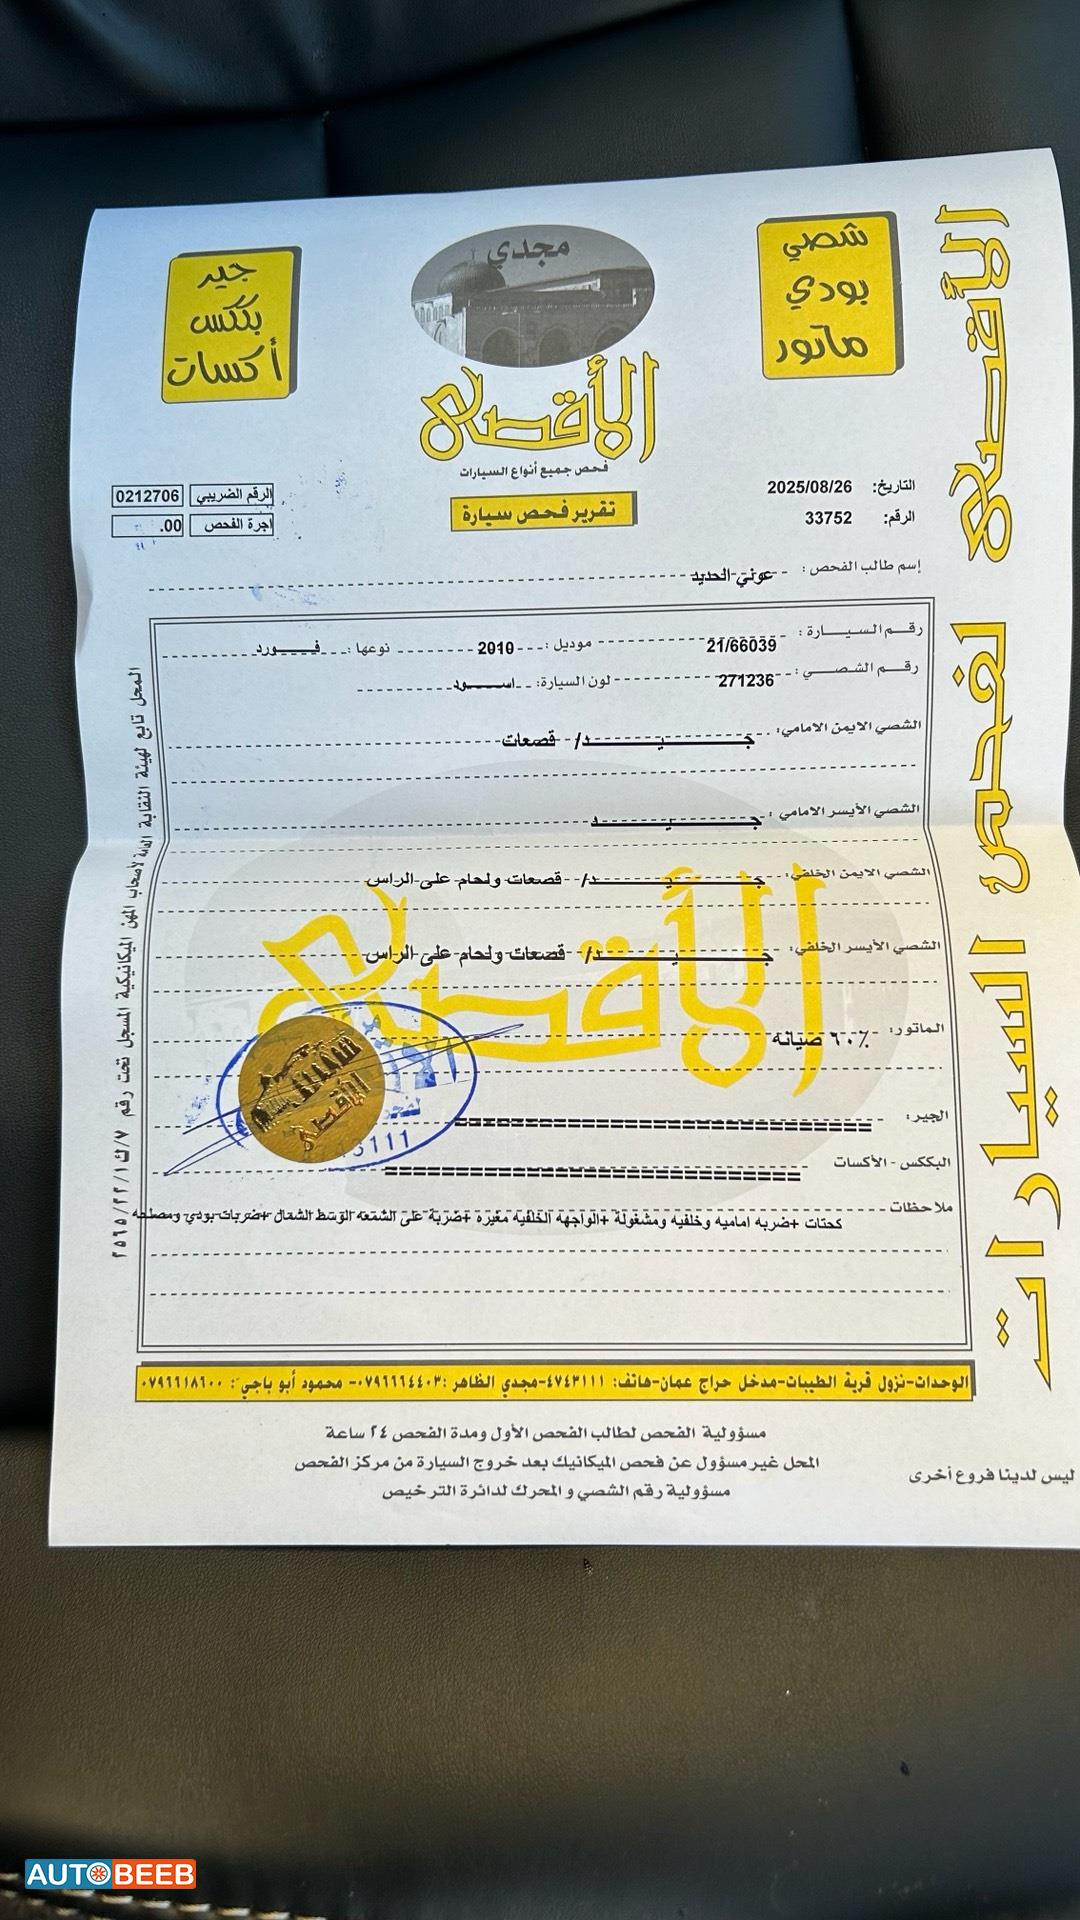 شصي
بودي
ماتور
مجدي
الأقصى
فحص جميع أنواع السيارات
تقرير فحص سيارة
جير
بكس
أكسات
التاريخ: 2025/08/26
الرقم: 33752
الرقم الضريبي 0212706
اجرة الفحص .00
إسم طالب الفحص: عوني الحديد
رقم السيارة: 21/66039 موديل: 2010 نوعها: فورد
رقم الشصي: 271236 لون السيارة: اسود
الشصي الايمن الامامي: جيد/ قصعات
الشصي الأيسر الامامي: جيد
الشصي الايمن الخلفي: جيد/ قصعات ولحام على الراس
الشصي الأيسر الخلفي: جيد/ قصعات ولحام على الراس
الماتور: ٦٠٪ صيانه
الجير: ==============================
البككس - الأكسات ==============================
ملاحظات كحتات +ضربه اماميه وخلفيه ومشغولة +الواجهه الخلفيه مغيره +ضربة على الشمعه الوسط الشمال +ضربات بودي ومصلحه
الأقصى
الأقصى
3111
الوحدات-نزول قرية الطيبات-مدخل حراج عمان-هاتف: ٤٧٤٣١١١-مجدي الظاهر :٠٧٩٦٦٦٤٤٠٣- محمود أبو باجي: ٠٧٩٦٦١٨٦٠٠
مسؤولية الفحص لطالب الفحص الأول ومدة الفحص ٢٤ ساعة
المحل غير مسؤول عن فحص الميكانيك بعد خروج السيارة من مركز الفحص
مسؤولية رقم الشصي و المحرك لدائرة الترخيص
ليس لدينا فروع أخرى
الأقصى لفحص السيارات
المحل تابع لهيئة النقابة العامة لأصحاب المهن الميكانيكية المسجل تحت رقم ٧/ك/٢٥٦٥/٢٢/١
AUTOBEEB